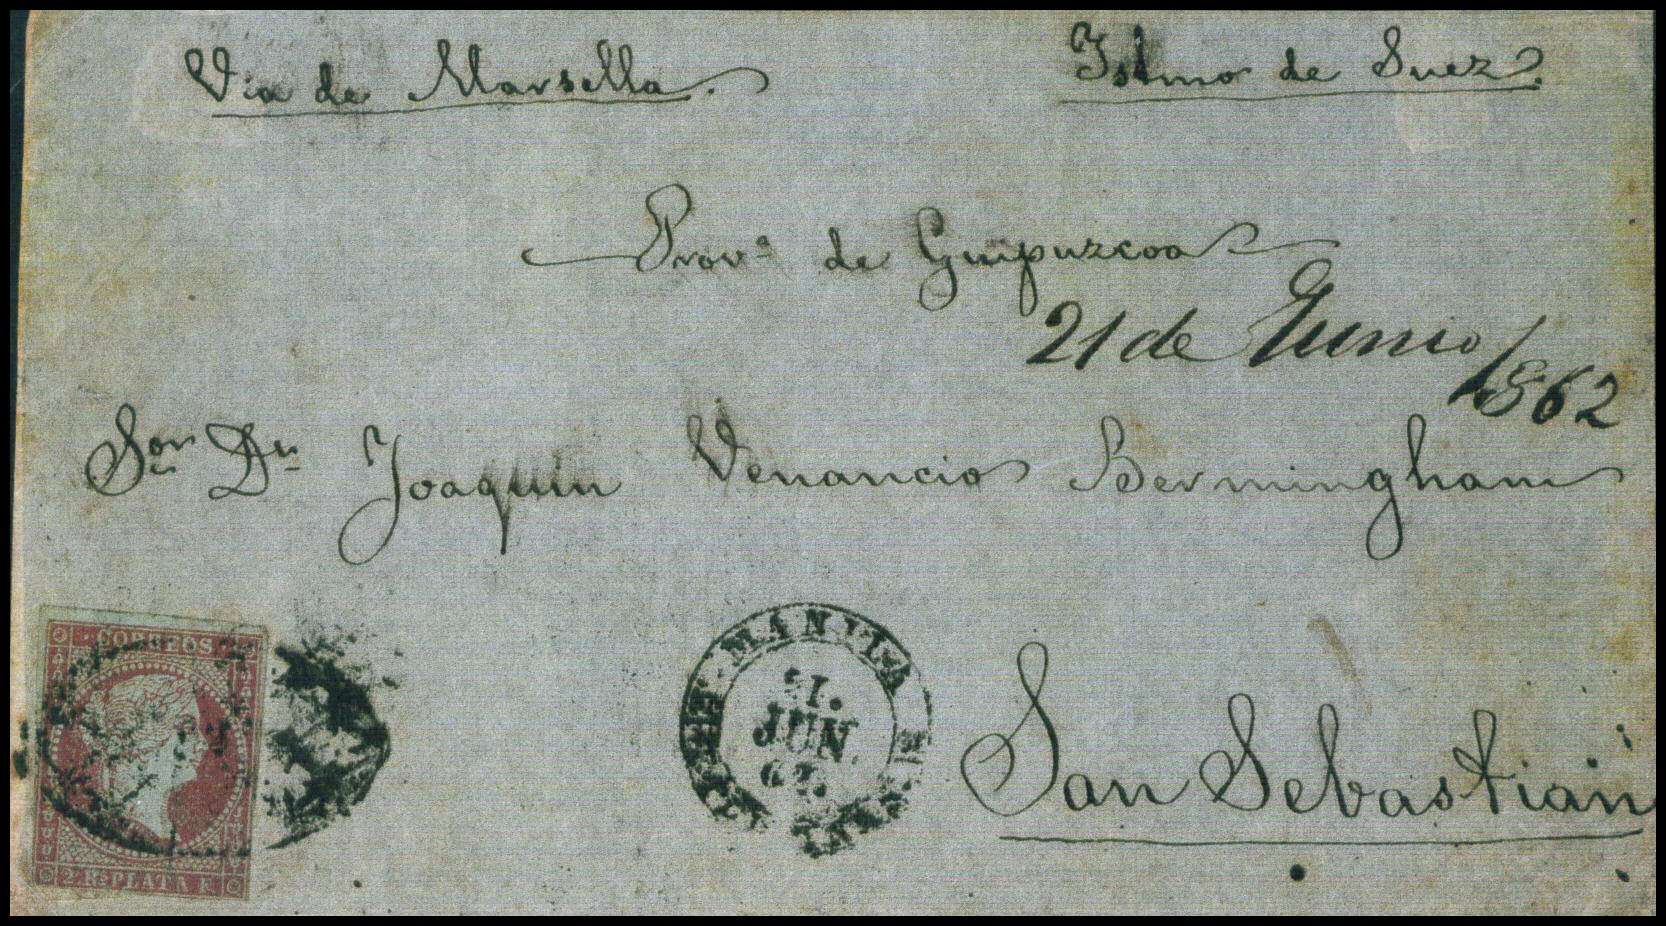 Via de Marsella.
Istmo de Suez.
Prov.ª de Guipuzcoa
21 de Junio
1862
Sor Dn Joaquin Venancio Bermingham
CORREOS
2 Rs PLATA F.
MANILA
21.
JUN
62.
San Sebastián